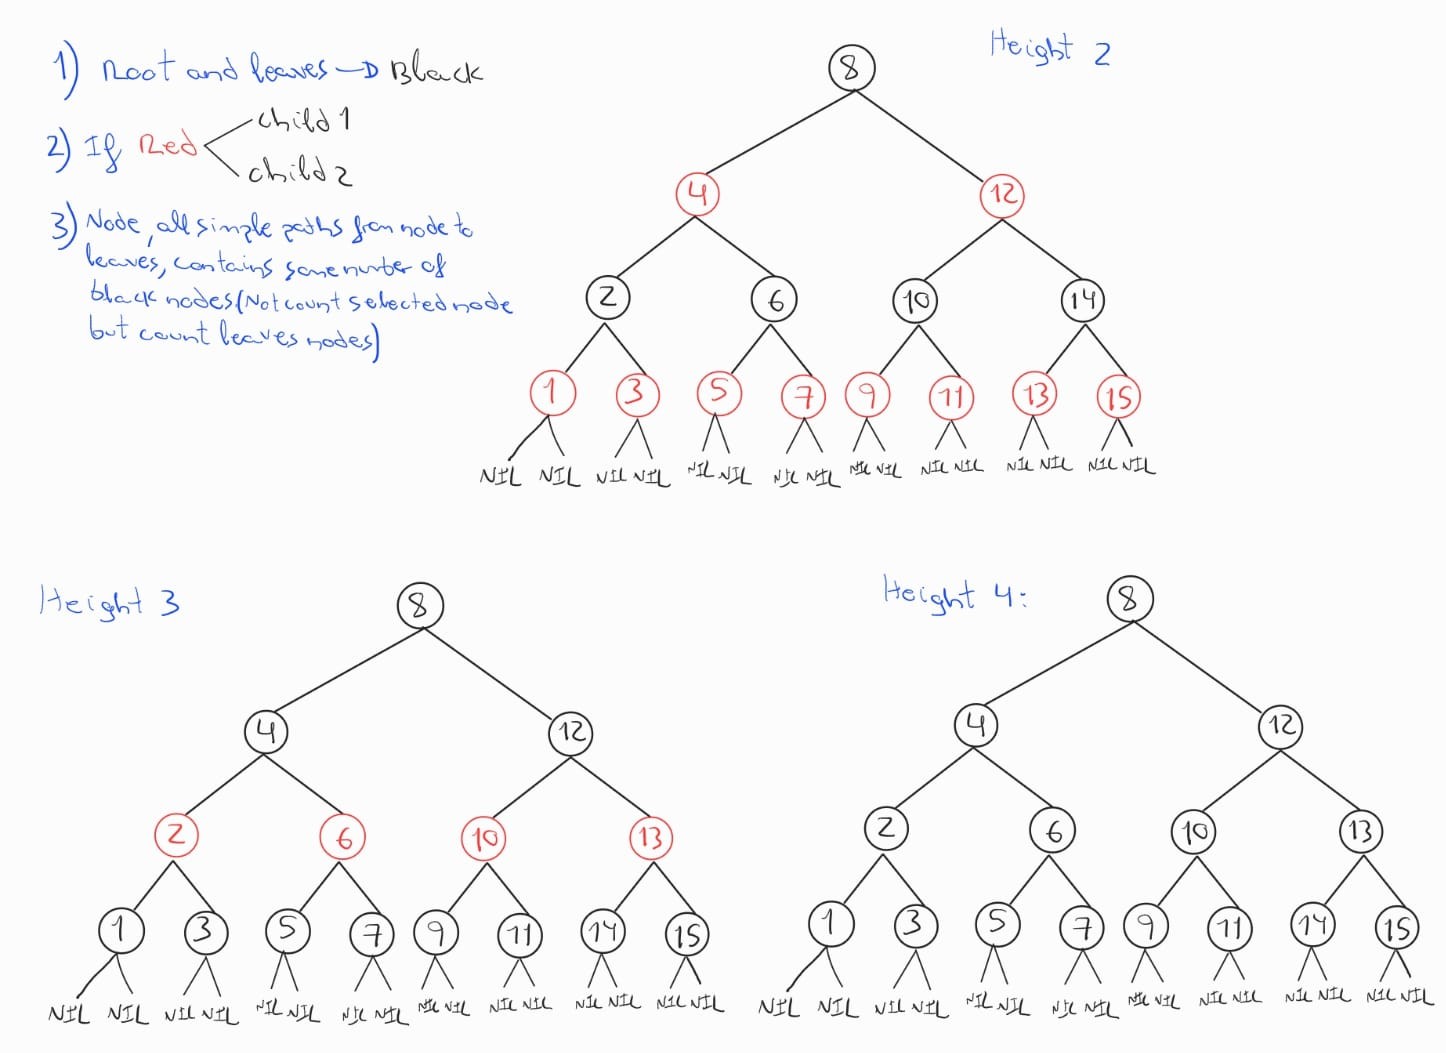 1) Root and leaves → Black
2) If Red
child 1
child 2
3) Node, all simple paths from node to
leaves, contains same number of
black nodes (Not count selected node
but count leaves nodes)
Height 2
8
4 12
2 6 10 14
1 3 5 7 9 11 13 15
NIL NIL NIL NIL NIL NIL NIL NIL NIL NIL NIL NIL NIL NIL NIL NIL
Height 3
8
4 12
2 6 10 13
1 3 5 7 9 11 14 15
NIL NIL NIL NIL NIL NIL NIL NIL NIL NIL NIL NIL NIL NIL NIL NIL
Height 4:
8
4 12
2 6 10 13
1 3 5 7 9 11 14 15
NIL NIL NIL NIL NIL NIL NIL NIL NIL NIL NIL NIL NIL NIL NIL NIL